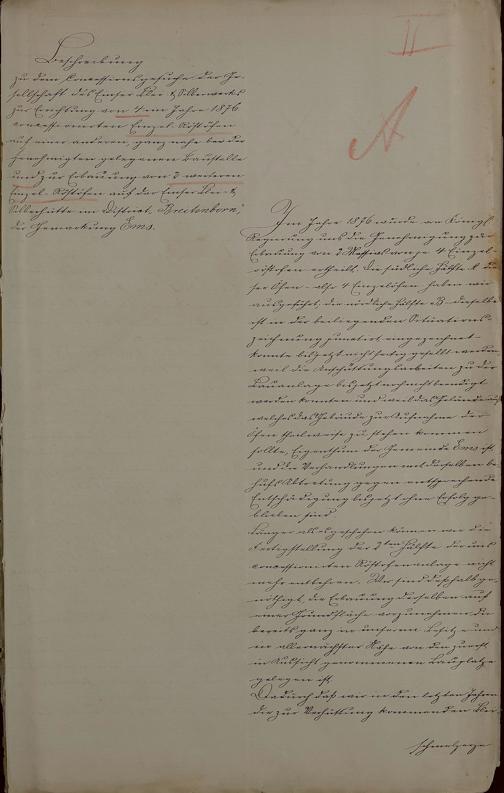 II
A
Beschreibung
zu dem Concessionsgesuche der Ge-
sellschaft des Emser Blei- & Silberwerks
zur Errichtung von 4 im Jahre 1876
concessionirten Einzel-Röstöfen
auf einer anderen, ganz nahe bei der
genehmigten gelegenen Baustelle
und zur Erbauung von 3 weiteren
Einzel-Röstöfen auf der Emser Blei- &
Silberhütte im District „Breitenborn“
der Gemarkung Ems.
Im Jahre 1876 wurde von Königl.
Regierung uns die Genehmigung zur
Erbauung von 2 Massivs von je 4 Einzel-
röstöfen ertheilt. Die südliche Hälfte A die-
ser Öfen – also 4 Einzelöfen haben wir
ausgeführt, die nördliche Hälfte B derselben
ist in der beiliegenden Situations-
zeichnung punctirt eingezeichnet
konnte bis jetzt nicht fertig gestellt werden,
weil die Anschüttungsarbeiten zu der
Bauanlage bis jetzt noch nicht beendigt
werden konnten und weil das Gelände auf
welches das Gebäude zur Aufnahme der
Öfen theilweise zu stehen kommen
sollte, Eigenthum der Gemeinde Ems ist
und die Verhandlungen mit derselben be-
hufs Abtretung gegen entsprechende
Entschädigung bis jetzt ohne Erfolg ge-
blieben sind
Länger als geschehen können wir die
Fertigstellung der 2ten Hälfte der uns
concessionirten Röstofenanlage nicht
mehr entbehren. Wir sind deßhalb ge-
nöthigt, die Erbauung derselben auf
einer Grundfläche vorzunehmen, die
bereits ganz in unserem Besitze und
in allernächster Nähe von dem zuerst
in Aussicht genommenen Bauplatze
gelegen ist.
Dadurch daß wir in den letzten Jahren
die zur Verhüttung kommenden Blei-
schmelzerze